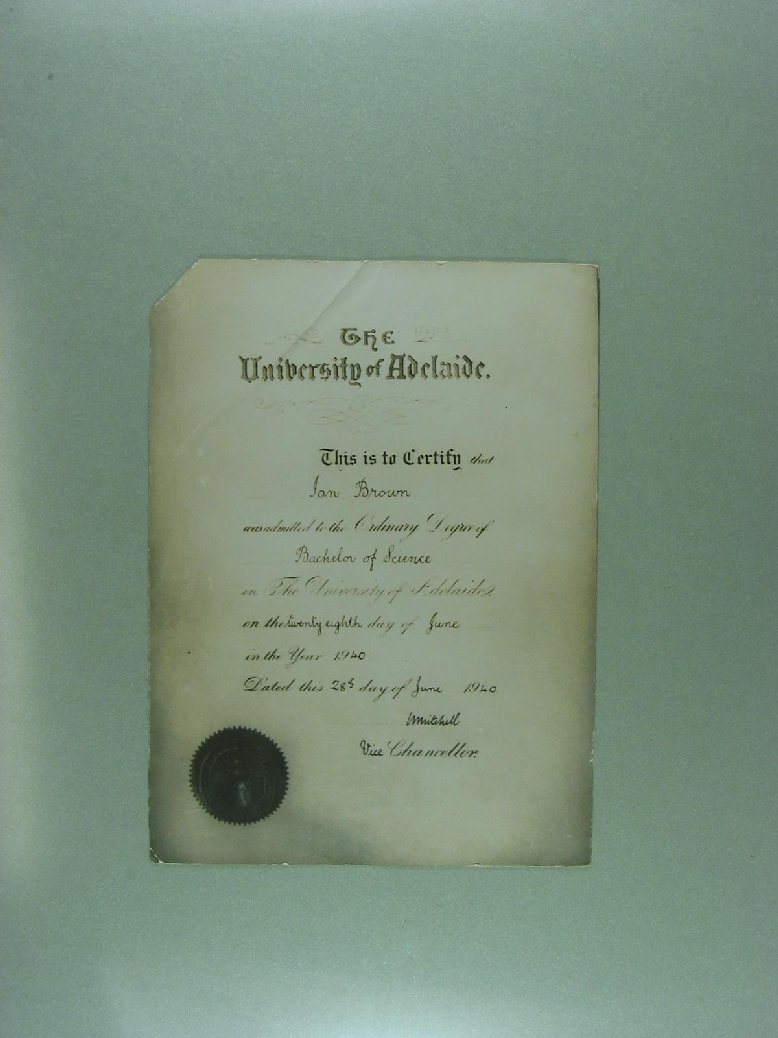 The
University of Adelaide.
This is to Certify that
Ian Brown
was admitted to the Ordinary Degree of
Bachelor of Science
in The University of Adelaide
on the twenty eighth day of June
in the Year 1940
Dated this 28th day of June 1940
WMitchell
Vice Chancellor.